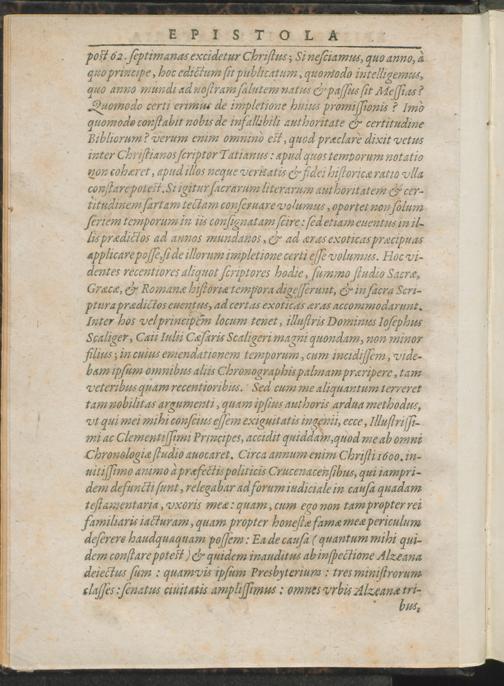 EPISTOLA
post 62. septimanas excidetur Christus; Si nesciamus, quo anno, à
quo principe, hoc edictum sit publicatum, quomodo intelligemus,
quo anno mundi ad nostram salutem natus & passus sit Messias?
Quomodo certi erimus de impletione huius promissionis? Imò
quomodo constabit nobis de infallibili authoritate & certitudine
Bibliorum? verum enim omninò est, quod præclare dixit vetus
inter Christianos scriptor Tatianus: apud quos temporum notatio
non cohæret, apud illos neque veritatis & fidei historicæ ratio vlla
constare potest. Si igitur sacrarum literarum authoritatem & cer-
titudinem sartam tectam conseruare volumus, oportet non solum
seriem temporum in iis consignatam scire: sed etiam euentus in il-
lis prædictos ad annos mundanos, & ad æras exoticas præcipuas
applicare posse, si de illorum impletione certi esse volumus. Hoc vi-
dentes recentiores aliquot scriptores hodie, summo studio Sacræ,
Græcæ, & Romanæ historiæ tempora digesserunt, & in sacra Scri-
ptura prædictos euentus, ad certas exoticas æras accommodarunt.
Inter hos vel principem locum tenet, illustris Dominus Iosephus
Scaliger, Caii Iulii Cæsaris Scaligeri magni quondam, non minor
filius; in cuius emendationem temporum, cum incidissem, vide-
bam ipsum omnibus aliis Chronographis palmam præripere, tam
veteribus quam recentioribus. Sed cum me aliquantum terreret
tam nobilitas argumenti, quam ipsius authoris ardua methodus,
vt qui mei mihi conscius essem exiguitatis ingenii, ecce, Illustrissi-
mi ac Clementissimi Principes, accidit quiddam, quod me ab omni
Chronologiæ studio auocaret. Circa annum enim Christi 1600. in-
uitissimo animo à præfectis politicis Crucenacensibus, qui iampri-
dem defuncti sunt, relegabar ad forum iudiciale in causa quadam
testamentaria, vxoris meæ: quam, cum ego non tam propter rei
familiaris iacturam, quam propter honestæ famæ meæ periculum
deserere haudquaquam possem: Ea de causa (quantum mihi qui-
dem constare potest) & quidem inauditus ab inspectione Alzeana
deiectus sum: quamvis ipsum Presbyterium: tres ministrorum
classes: senatus ciuitatis amplissimus: omnes vrbis Alzeanæ tri-
bus,